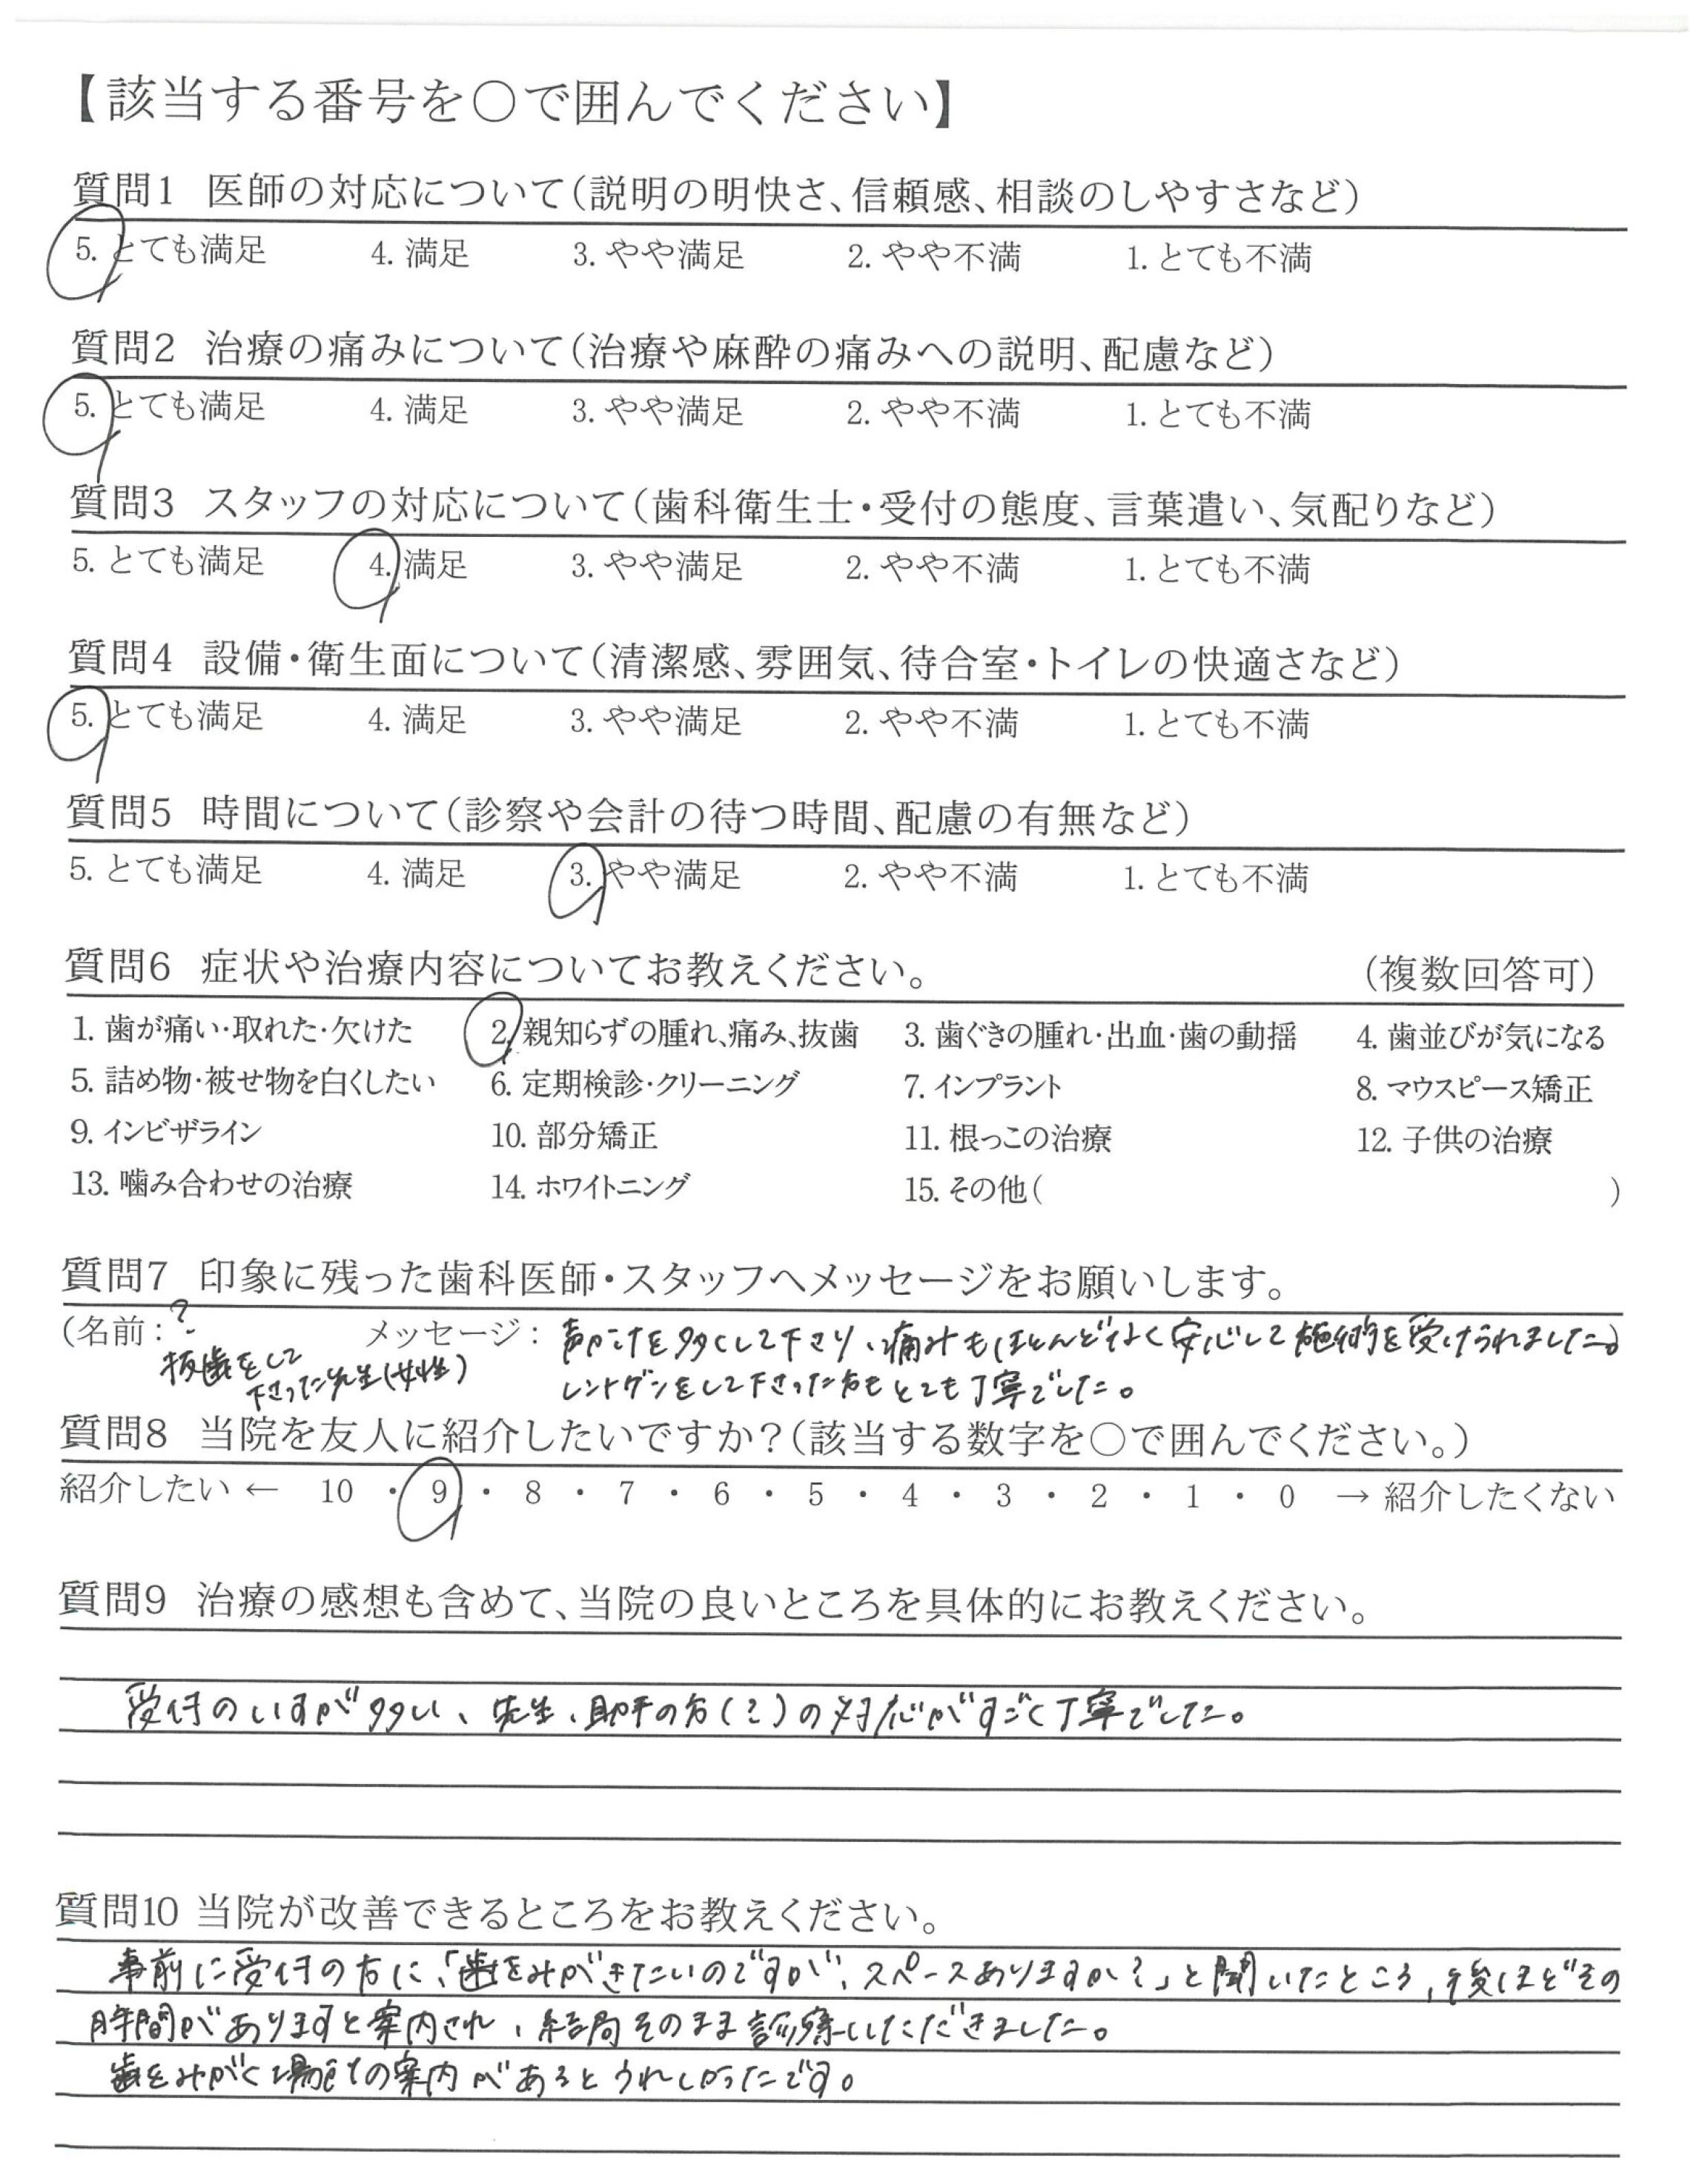 【該当する番号を○で囲んでください】
質問1 医師の対応について(説明の明快さ、信頼感、相談のしやすさなど)
5. とても満足 4. 満足 3. やや満足 2. やや不満 1. とても不満
質問2 治療の痛みについて(治療や麻酔の痛みへの説明、配慮など)
5. とても満足 4. 満足 3. やや満足 2. やや不満 1. とても不満
質問3 スタッフの対応について(歯科衛生士・受付の態度、言葉遣い、気配りなど)
5. とても満足 4. 満足 3. やや満足 2. やや不満 1. とても不満
質問4 設備・衛生面について(清潔感、雰囲気、待合室・トイレの快適さなど)
5. とても満足 4. 満足 3. やや満足 2. やや不満 1. とても不満
質問5 時間について(診察や会計の待つ時間、配慮の有無など)
5. とても満足 4. 満足 3. やや満足 2. やや不満 1. とても不満
質問6 症状や治療内容についてお教えください。 (複数回答可)
1. 歯が痛い・取れた・欠けた 2. 親知らずの腫れ、痛み、抜歯 3. 歯ぐきの腫れ・出血・歯の動揺 4. 歯並びが気になる
5. 詰め物・被せ物を白くしたい 6. 定期検診・クリーニング 7. インプラント 8. マウスピース矯正
9. インビザライン 10. 部分矯正 11. 根っこの治療 12. 子供の治療
13. 噛み合わせの治療 14. ホワイトニング 15. その他( )
質問7 印象に残った歯科医師・スタッフへメッセージをお願いします。
(名前: ? メッセージ: 声かけを多くして下さり、痛みもほとんどなく安心して施術を受けられました。
抜歯をして
下さった先生(女性) レントゲンをして下さった方もとても丁寧でした。
質問8 当院を友人に紹介したいですか?(該当する数字を○で囲んでください。)
紹介したい ← 10 ・ 9 ・ 8 ・ 7 ・ 6 ・ 5 ・ 4 ・ 3 ・ 2 ・ 1 ・ 0 → 紹介したくない
質問9 治療の感想も含めて、当院の良いところを具体的にお教えください。
受付のいすが多い、先生、助手の方(?)の対応がすごく丁寧でした。
質問10 当院が改善できるところをお教えください。
事前に受付の方に、「歯をみがきたいのですが、スペースありますか?」と聞いたところ、後ほどその
時間がありますと案内され、結局そのまま診療いただきました。
歯をみがく場所の案内があるとうれしかったです。